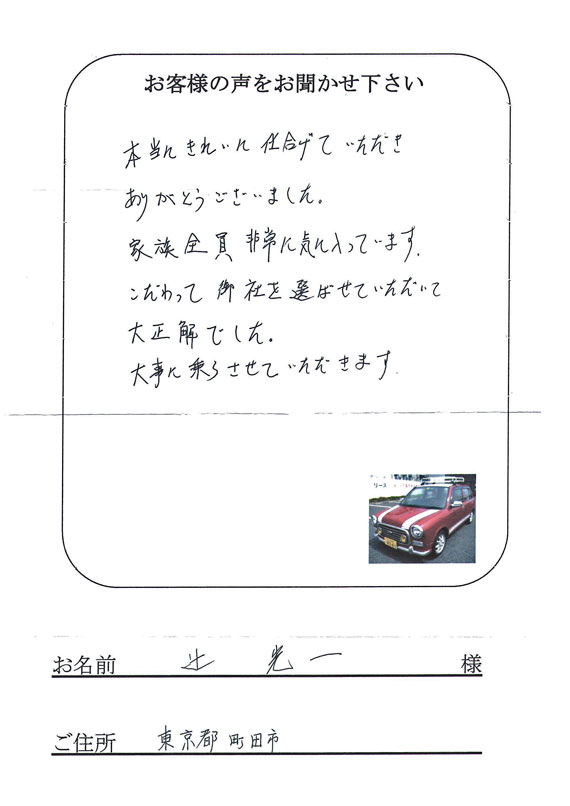 お客様の声をお聞かせ下さい
本当にきれいに仕上げていただき
ありがとうございました。
家族全員非常に気に入っています。
こだわって御社を選ばせていただいて
大正解でした。
大事に乗らさせていただきます。
リース
お名前 辻 光一 様
ご住所 東京都町田市